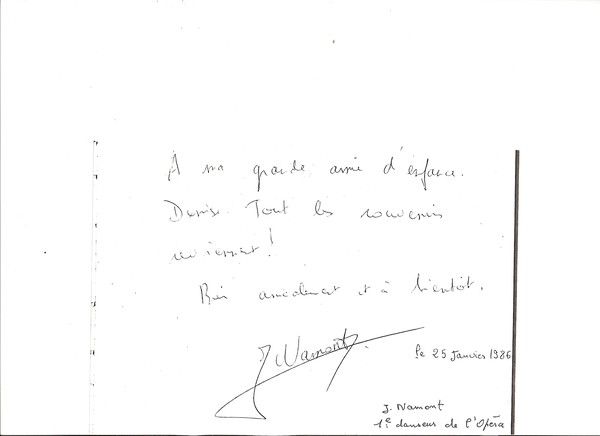 À ma grande amie d'enfance.
Denise. Tout les souvenirs
reviennent!
Bien amicalement et à bientôt.
J Namont.
le 25 Janvier 1986
J. Namont
1e danseur de l'Opéra